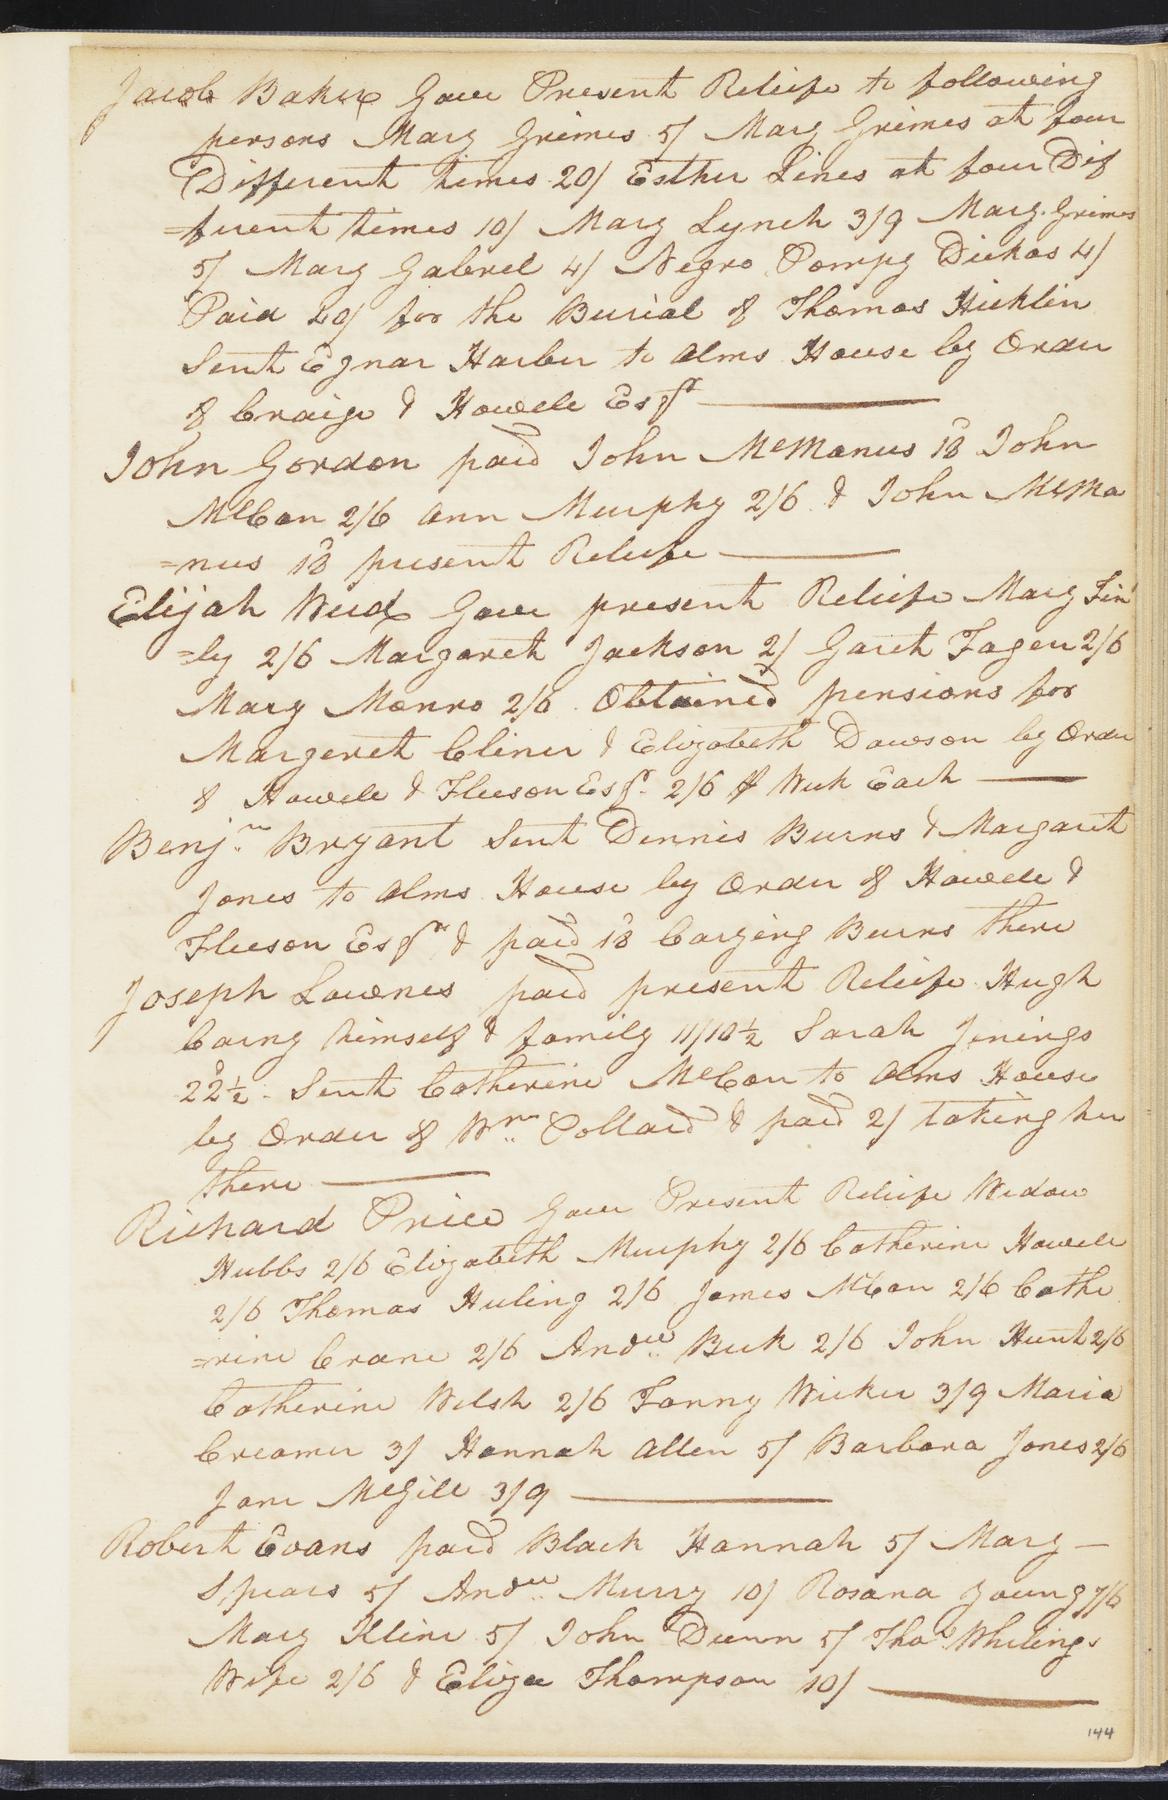 Jacob Baker Gave Present Releife to following
persons Mary Grimes 5/ Mary Grimes at four
Different times 20/ Esther Lines at four Dif
=ferent times 10/ Mary Lynch 3/9 Mary Grimes
5/ Mary Gabrel 4/ Negro Pompy Dickas 4/
Paid 20/ for the Burial of Thomas Hicklin
Sent Egnar Harber to Alms House by Order
of Craige & Howell Esqr
John Gordon paid John McManus 18 John
McCan 2/6 Ann Murphy 2/6 & John McMa
=nus 18 present Releife
Elijah Weed Gave present Releife Mary Fin
=ly 2/6 Margareth Jackson 2/ Garet Fagen 2/6
Mary Monro 2/6 Obtained pensions for
Margeret Cliner & Elizabeth Dawson by Order
of Howell & Fleeson Esqr 2/6 P Week Each
Benjn Bryant Sent Dennis Burns & Margaret
Jones to Alms House by Order of Howell &
Fleeson Esqrs & paid 18 Carying Burns there
Joseph Lownes paid present Releife Hugh
Carny himself & family 11/10½ Sarah Jenings
22½ Sent Catherine McCan to Alms House
by Order of Wm Pollard & paid 2/ taking her
there
Richard Price Gave Present Releife Widow
Hubbs 2/6 Elizabeth Murphy 2/6 Catherine Howell
2/6 Thomas Huling 2/6 James McCan 2/6 Cathe
=rine Crane 2/6 Andw Beck 2/6 John Hunt 2/6
Catherine Welsh 2/6 Fanny Wicker 3/9 Maria
Creamer 3/ Hannah Allen 5/ Barbara Jones 2/6
Jane McGill 3/9
Robert Evans paid Black Hannah 5/ Mary
Spears 5/ Andw Murry 10/ Rosana Young 7/6
Mary Kline 5/ John Dunn 5/ Thos Whilings
Wife 2/6 & Eliza Thompson 10/
144